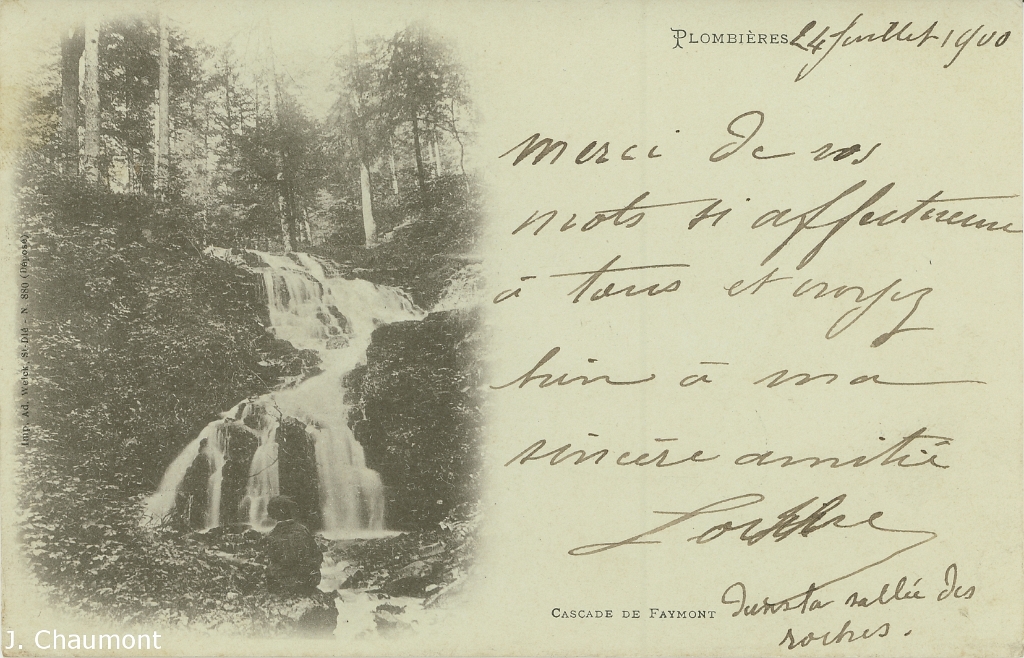 PLOMBIÈRES 24 Juillet 1900
merci de vos
mots si affectueux
à tous et croyez
bien à ma
sincère amitié
CASCADE DE FAYMONT dans la vallée des
roches.
Imp. Ad. Weick, St-Dié - N. 880 (Déposé)
J. Chaumont